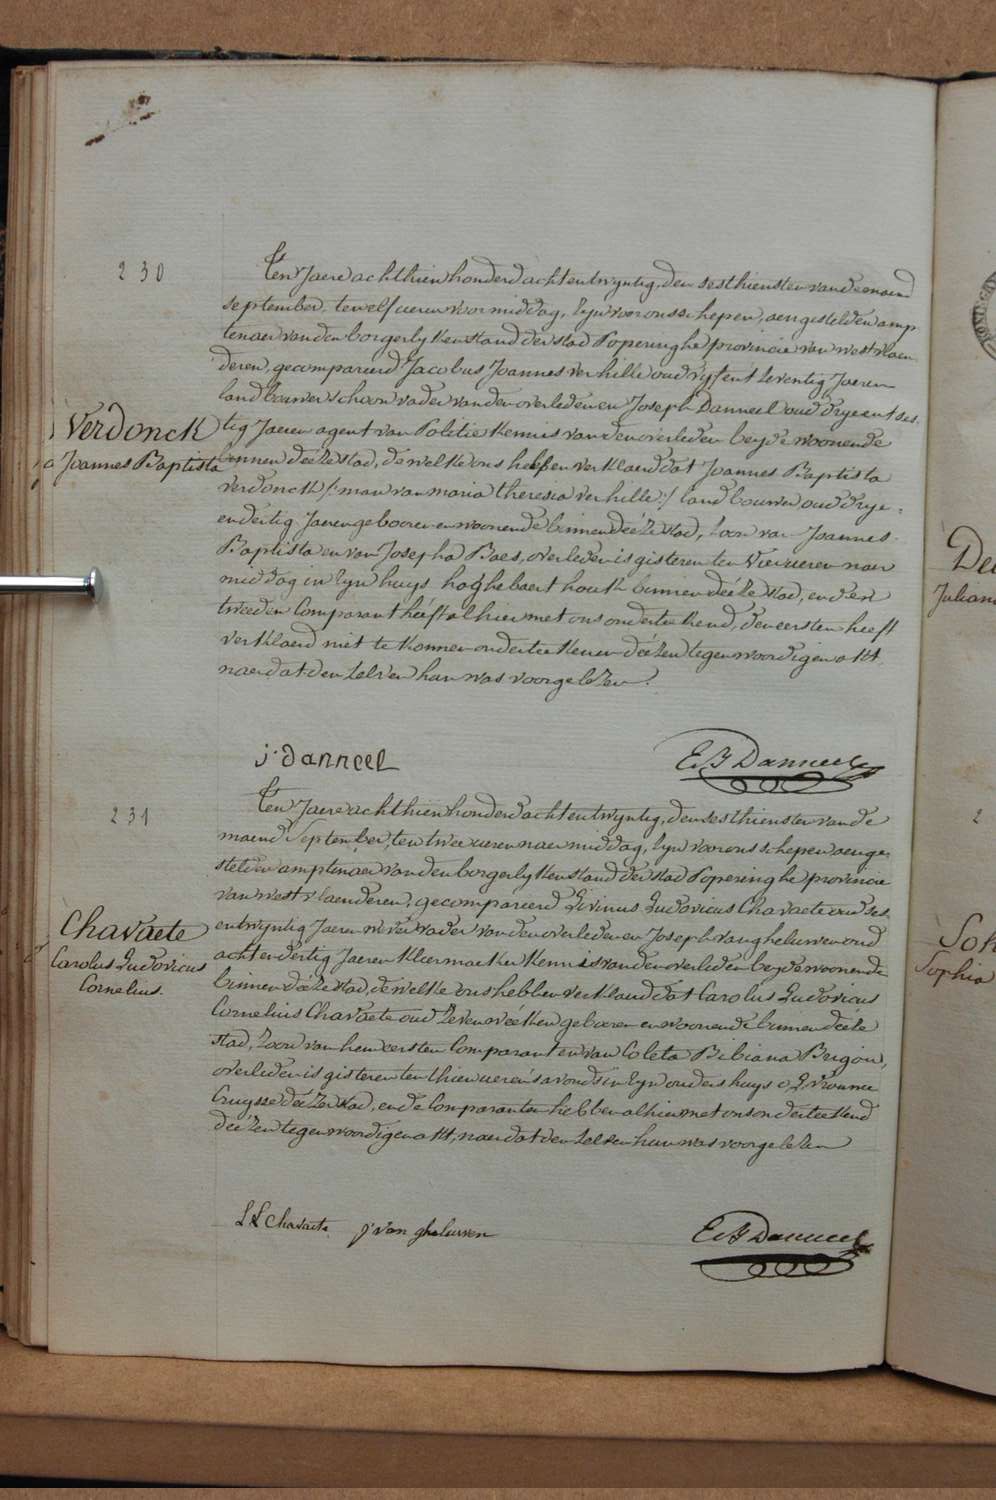 230
Ten Jaere achthien honderd achtentwyntig, den sesthiensten van de maend
september, ten elf ueren voormiddag, Zyn voor ons schepen, aengestelden amp-
tenaer van den borgerlyken stand der stad Poperinghe provincie van westvlaen-
deren, gecompareerd Jacobus Joannes verhille oud vyfentseventig Jaeren
landbouwer schoonvader van den overledenen Joseph Danneel oud dryentses-
tig Jaeren agent van Politie kennis van den overleden beyde woonende
binnen deéze stad, de welke ons hebben verklaerd dat Joannes Baptista
verdonck /: man van maria theresia verhille :/ landbouwer oud drye-
endertig Jaeren geboren en woonende binnen deéze stad, zoon van Joannes
Baptista en van Josepha Baes, overleden is gisteren ten vier ueren naer
middag in Zyn huys, hoghebaert houck binnen deéze stad, en den
tweeden Comparant heéft alhier met ons onderteekend, den eersten heeft
verklaerd niet te konnen onderteekenen deézen tegenwoordigen akt
naer dat den zelven hun was voorgelezen.
Verdonck
Joannes Baptista
j. Danneel
E. J Danneel
231
Ten Jaere achthien honderd achtentwyntig, den sesthiensten van de
maend September, ten twee ueren naermiddag, Zyn voor ons schepen aenge-
stelden amptenaer van den borgerlyken stand der stad Poperinghe provincie
van westvlaenderen, gecompareerd Livinus Ludovicus Chavaete oud ses-
entwyntig Jaeren wever vader van den overledenen Joseph vangheluwen oud
achtendertig Jaeren kleermaeker kennis van den overleden beyde woonende
binnen deéze stad, de welke ons hebben verklaerd dat Carolus Ludovicus
Cornelius Chavaete oud zeven weéken geboren en woonende binnen deéze
stad, zoon van hem eersten Comparant en van Coleta Bibiana Brigou,
overleden is gisteren ten thien ueren s'avonds in Zyn ouders huys
Cruysse deézer stad, en de Comparanten hebben alhier met ons onderteekend
deézen tegenwoordigen akt, naer dat den zelven hun was voorgelezen
Chavaete
Carolus Ludovicus
Cornelius.
L L Chavaete j van gheluwen
E. J Danneel
De
Juliana
2
Sophia